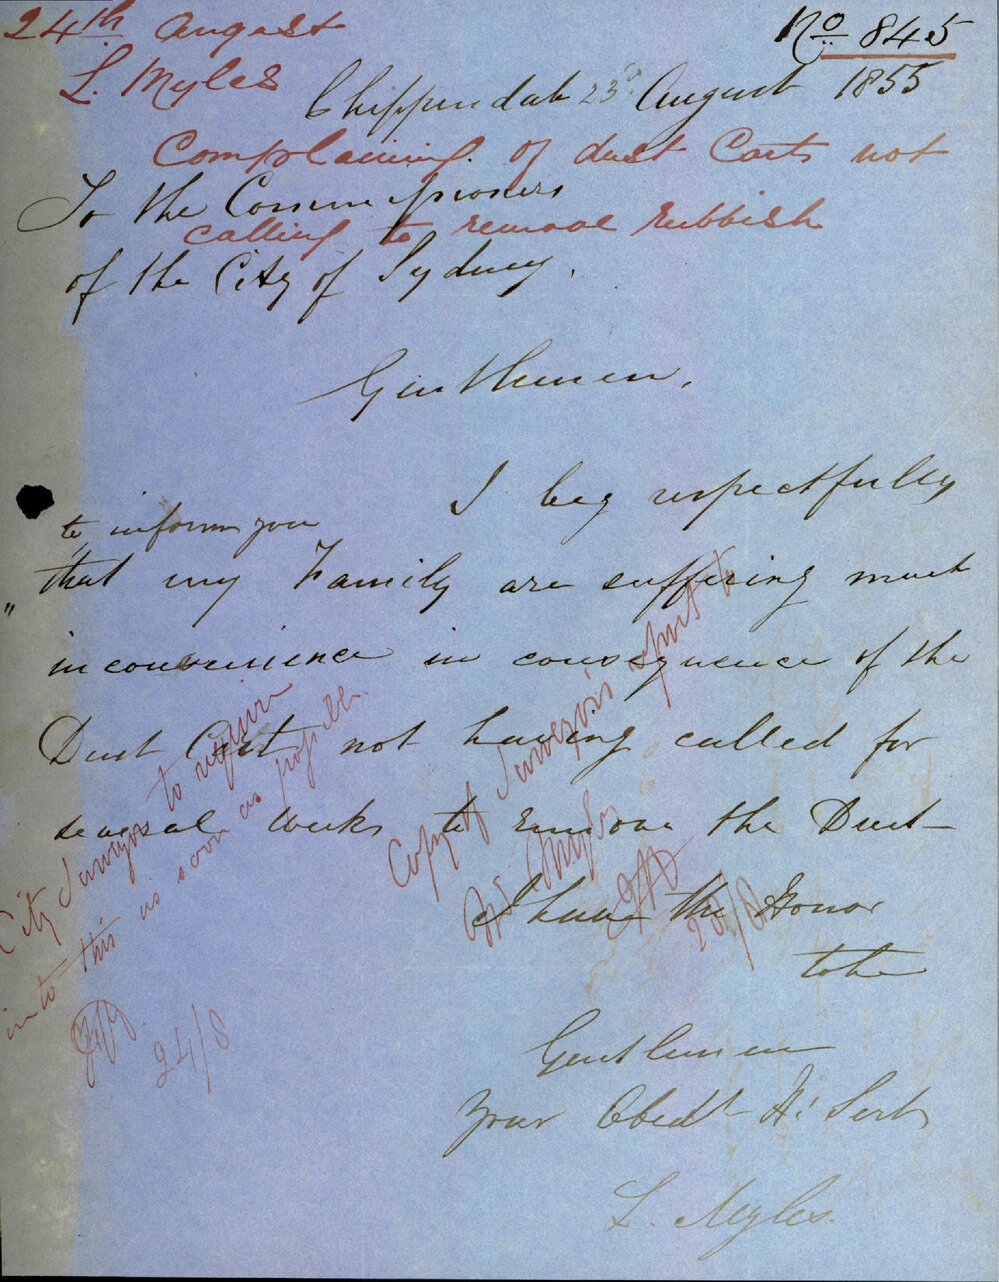 24th August
No 845
L. Myles
Chippendale 23rd August 1855
Complaining of dust Carts not
To the Commissioners
calling to remove rubbish
of the City of Sydney.
Gentlemen,
I beg respectfully
to inform you
that my Family are suffering much
inconvenience in consequence of the
Dust Cart not having called for
several weeks to remove the Dust
I have the Honor
to be
Gentlemen
Your Obedt H: Servt
L. Myles.
City Surveyor to inquire
into this as soon as possible.
24/8
Copy of Surveyor's report to
Mr Myles
28/8